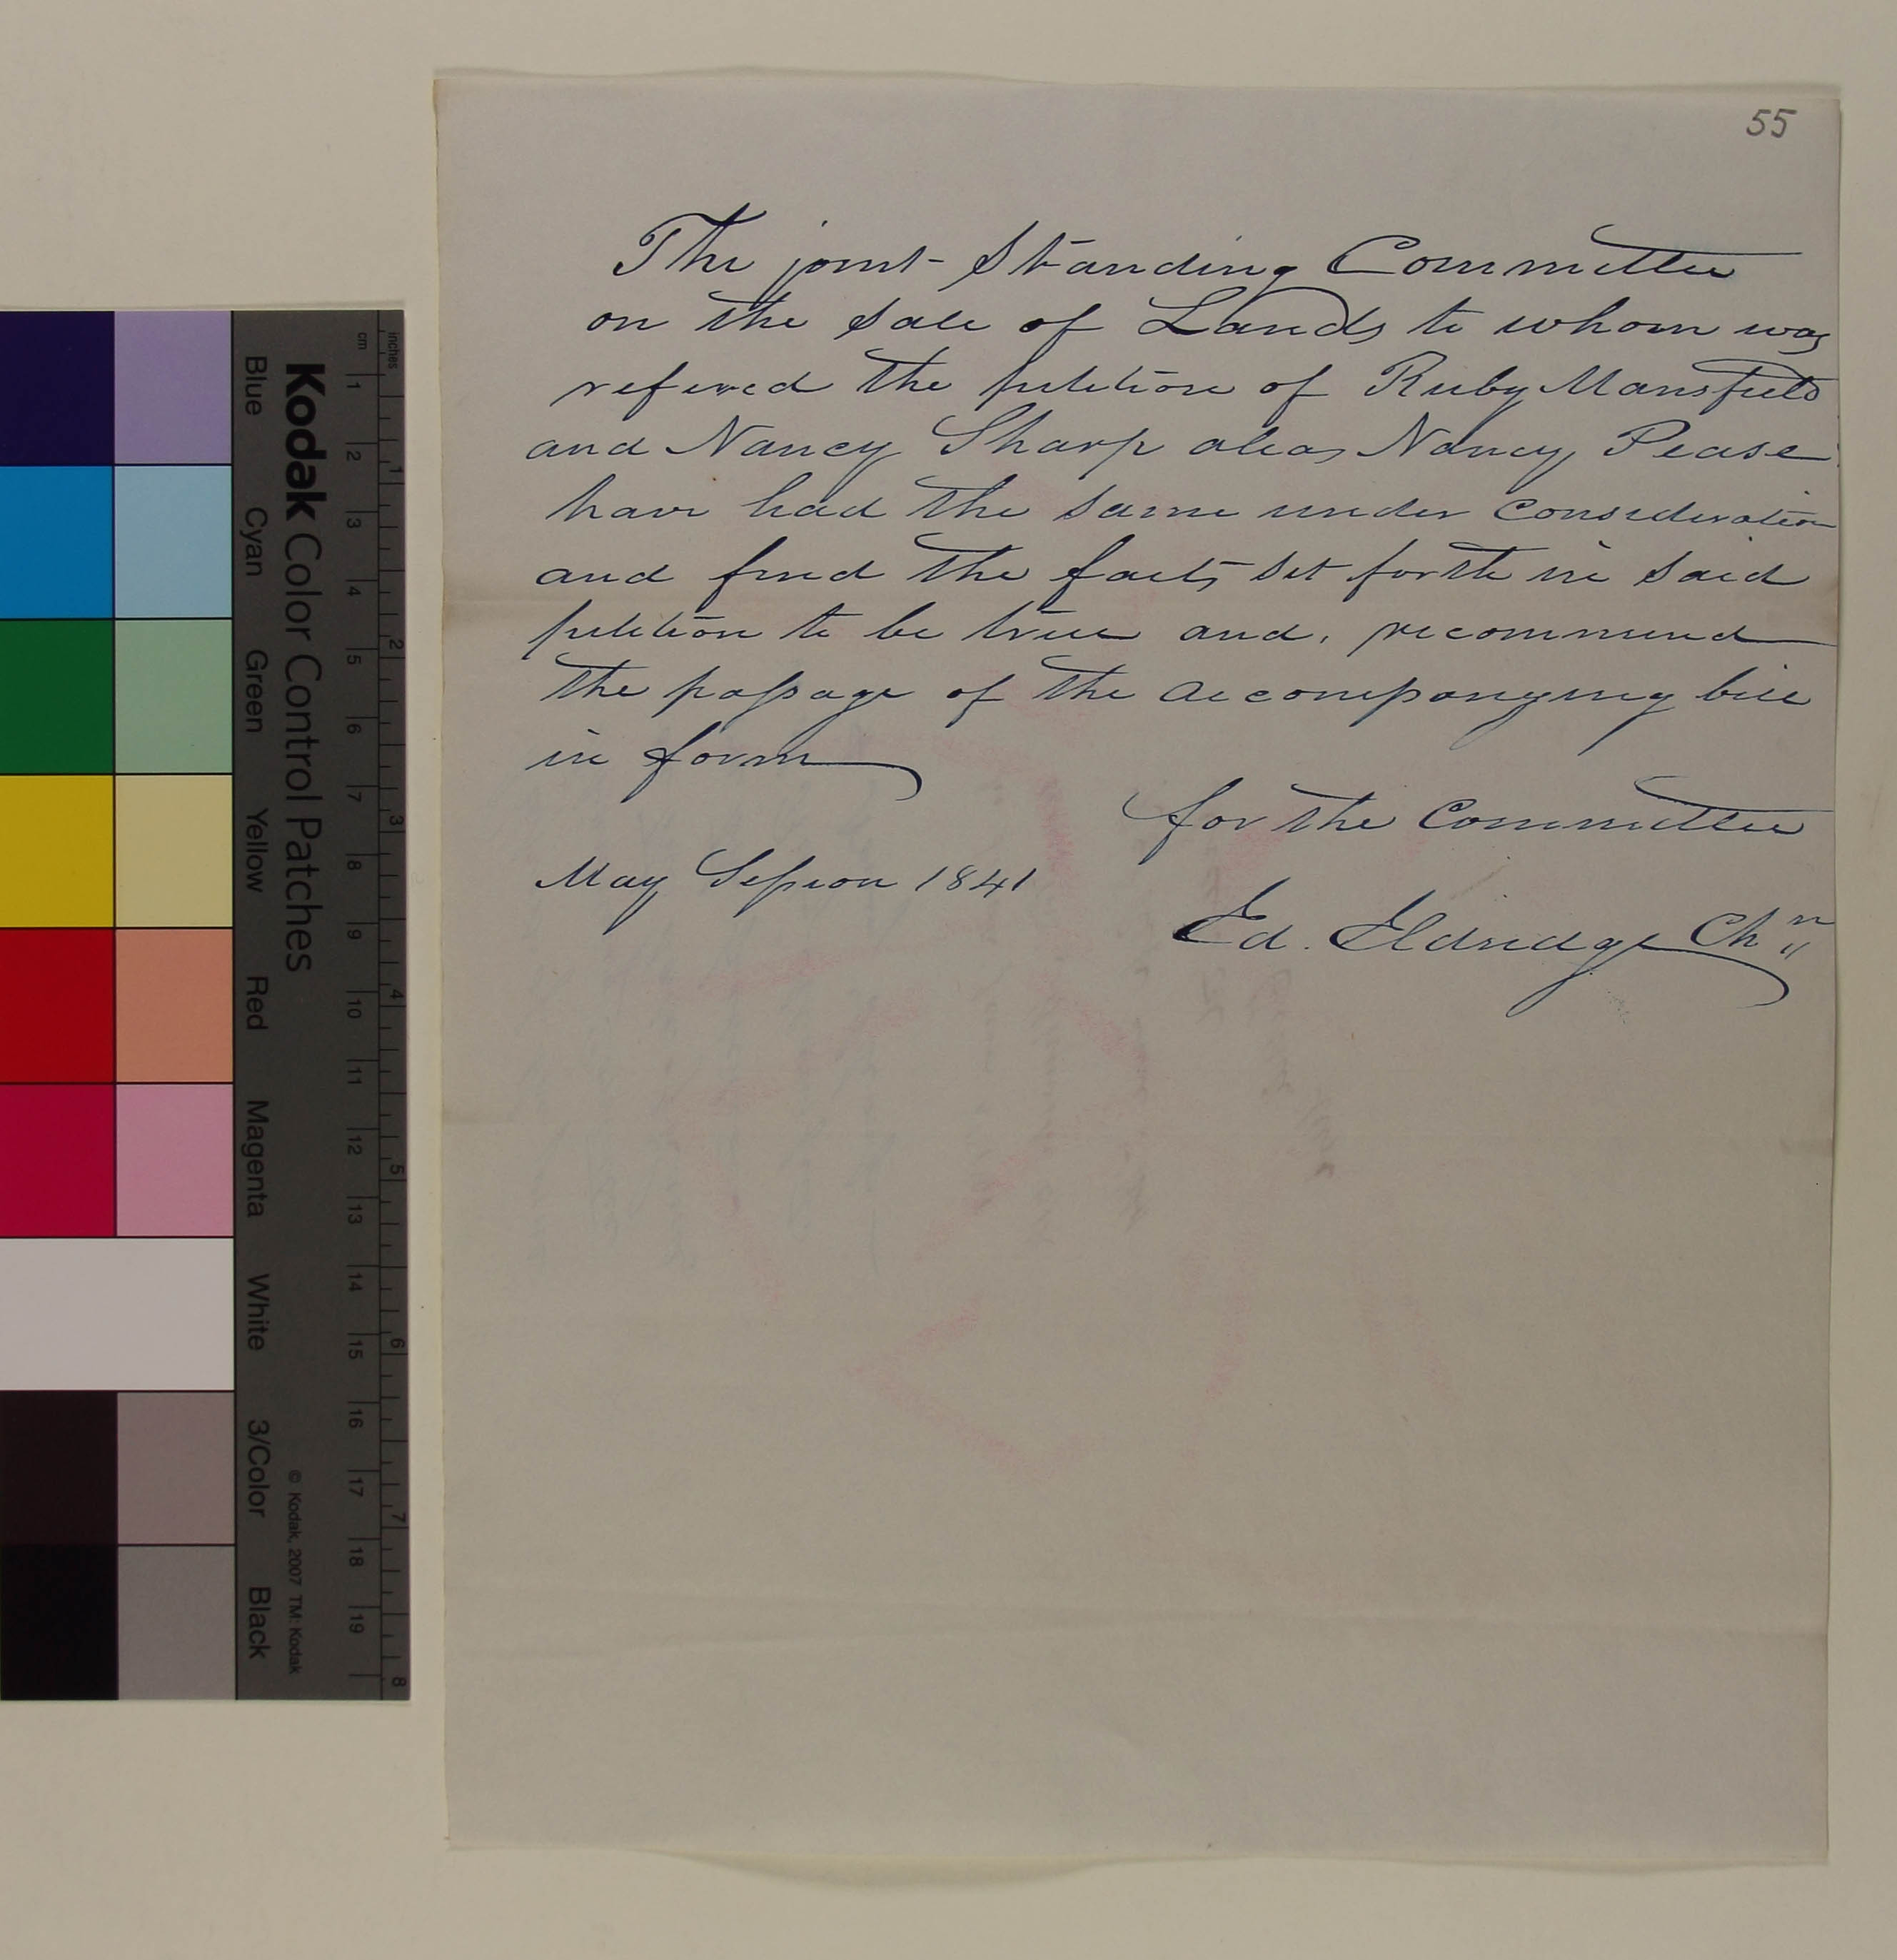 55
The joint Standing Committee
on the Sale of Lands to whom was
refered the petition of Ruby Mansfield
and Nancy Sharp alias Nancy Pease
have had the same under consideration
and find the facts set forth in said
petition to be true and, recommend
the passage of the accompanying bill
in form
for the Committee
May Session 1841
Ed. Eldridge Chn
inches
cm
1 2 3 4 5 6 7 8 9 10 11 12 13 14 15 16 17 18 19
1 2 3 4 5 6 7 8
Kodak Color Control Patches
© Kodak, 2007 TM: Kodak
Blue Cyan Green Yellow Red Magenta White 3/Color Black